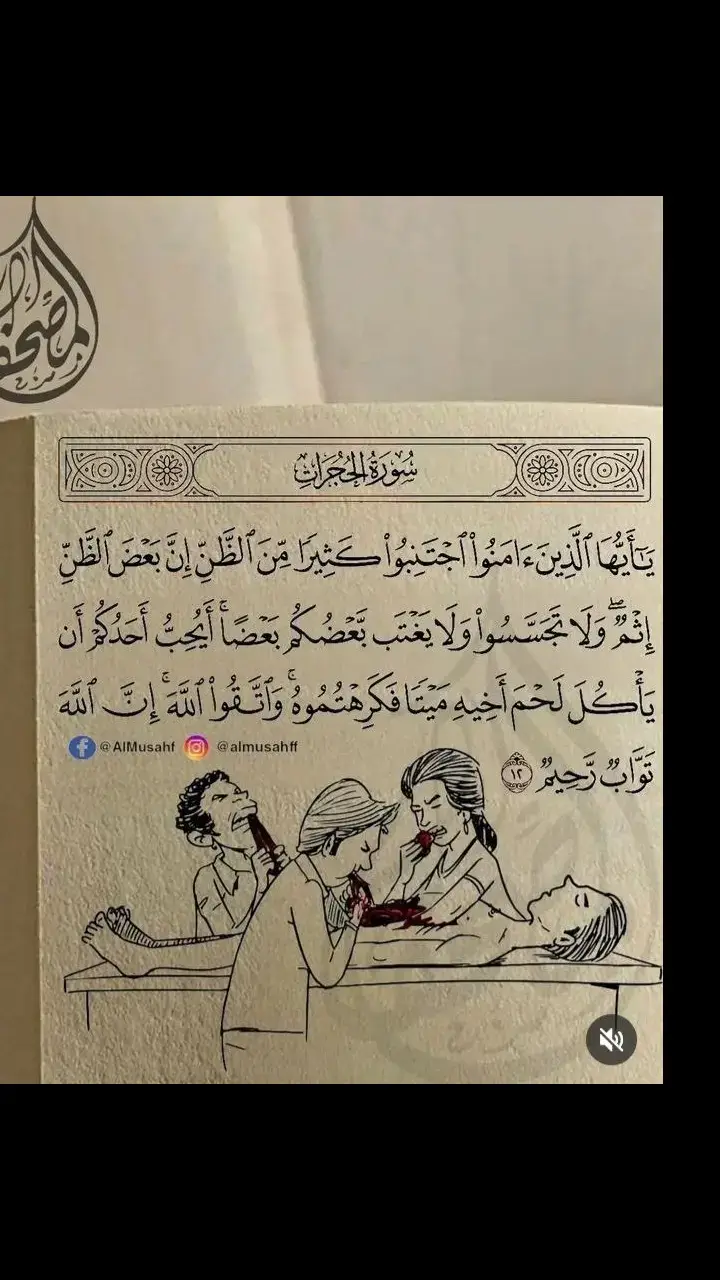 سُورَةُ الحُجُرَاتِ
يَـٰٓأَيُّهَا ٱلَّذِينَ ءَامَنُوا۟ ٱجْتَنِبُوا۟ كَثِيرًا مِّنَ ٱلظَّنِّ إِنَّ بَعْضَ ٱلظَّنِّ
إِثْمٌ ۖ وَلَا تَجَسَّسُوا۟ وَلَا يَغْتَب بَّعْضُكُم بَعْضًا ۚ أَيُحِبُّ أَحَدُكُمْ أَن
يَأْكُلَ لَحْمَ أَخِيهِ مَيْتًا فَكَرِهْتُمُوهُ ۚ وَٱتَّقُوا۟ ٱللَّهَ ۚ إِنَّ ٱللَّهَ
@AlMusahf @almusahff
تَوَّابٌ رَّحِيمٌ ١٢